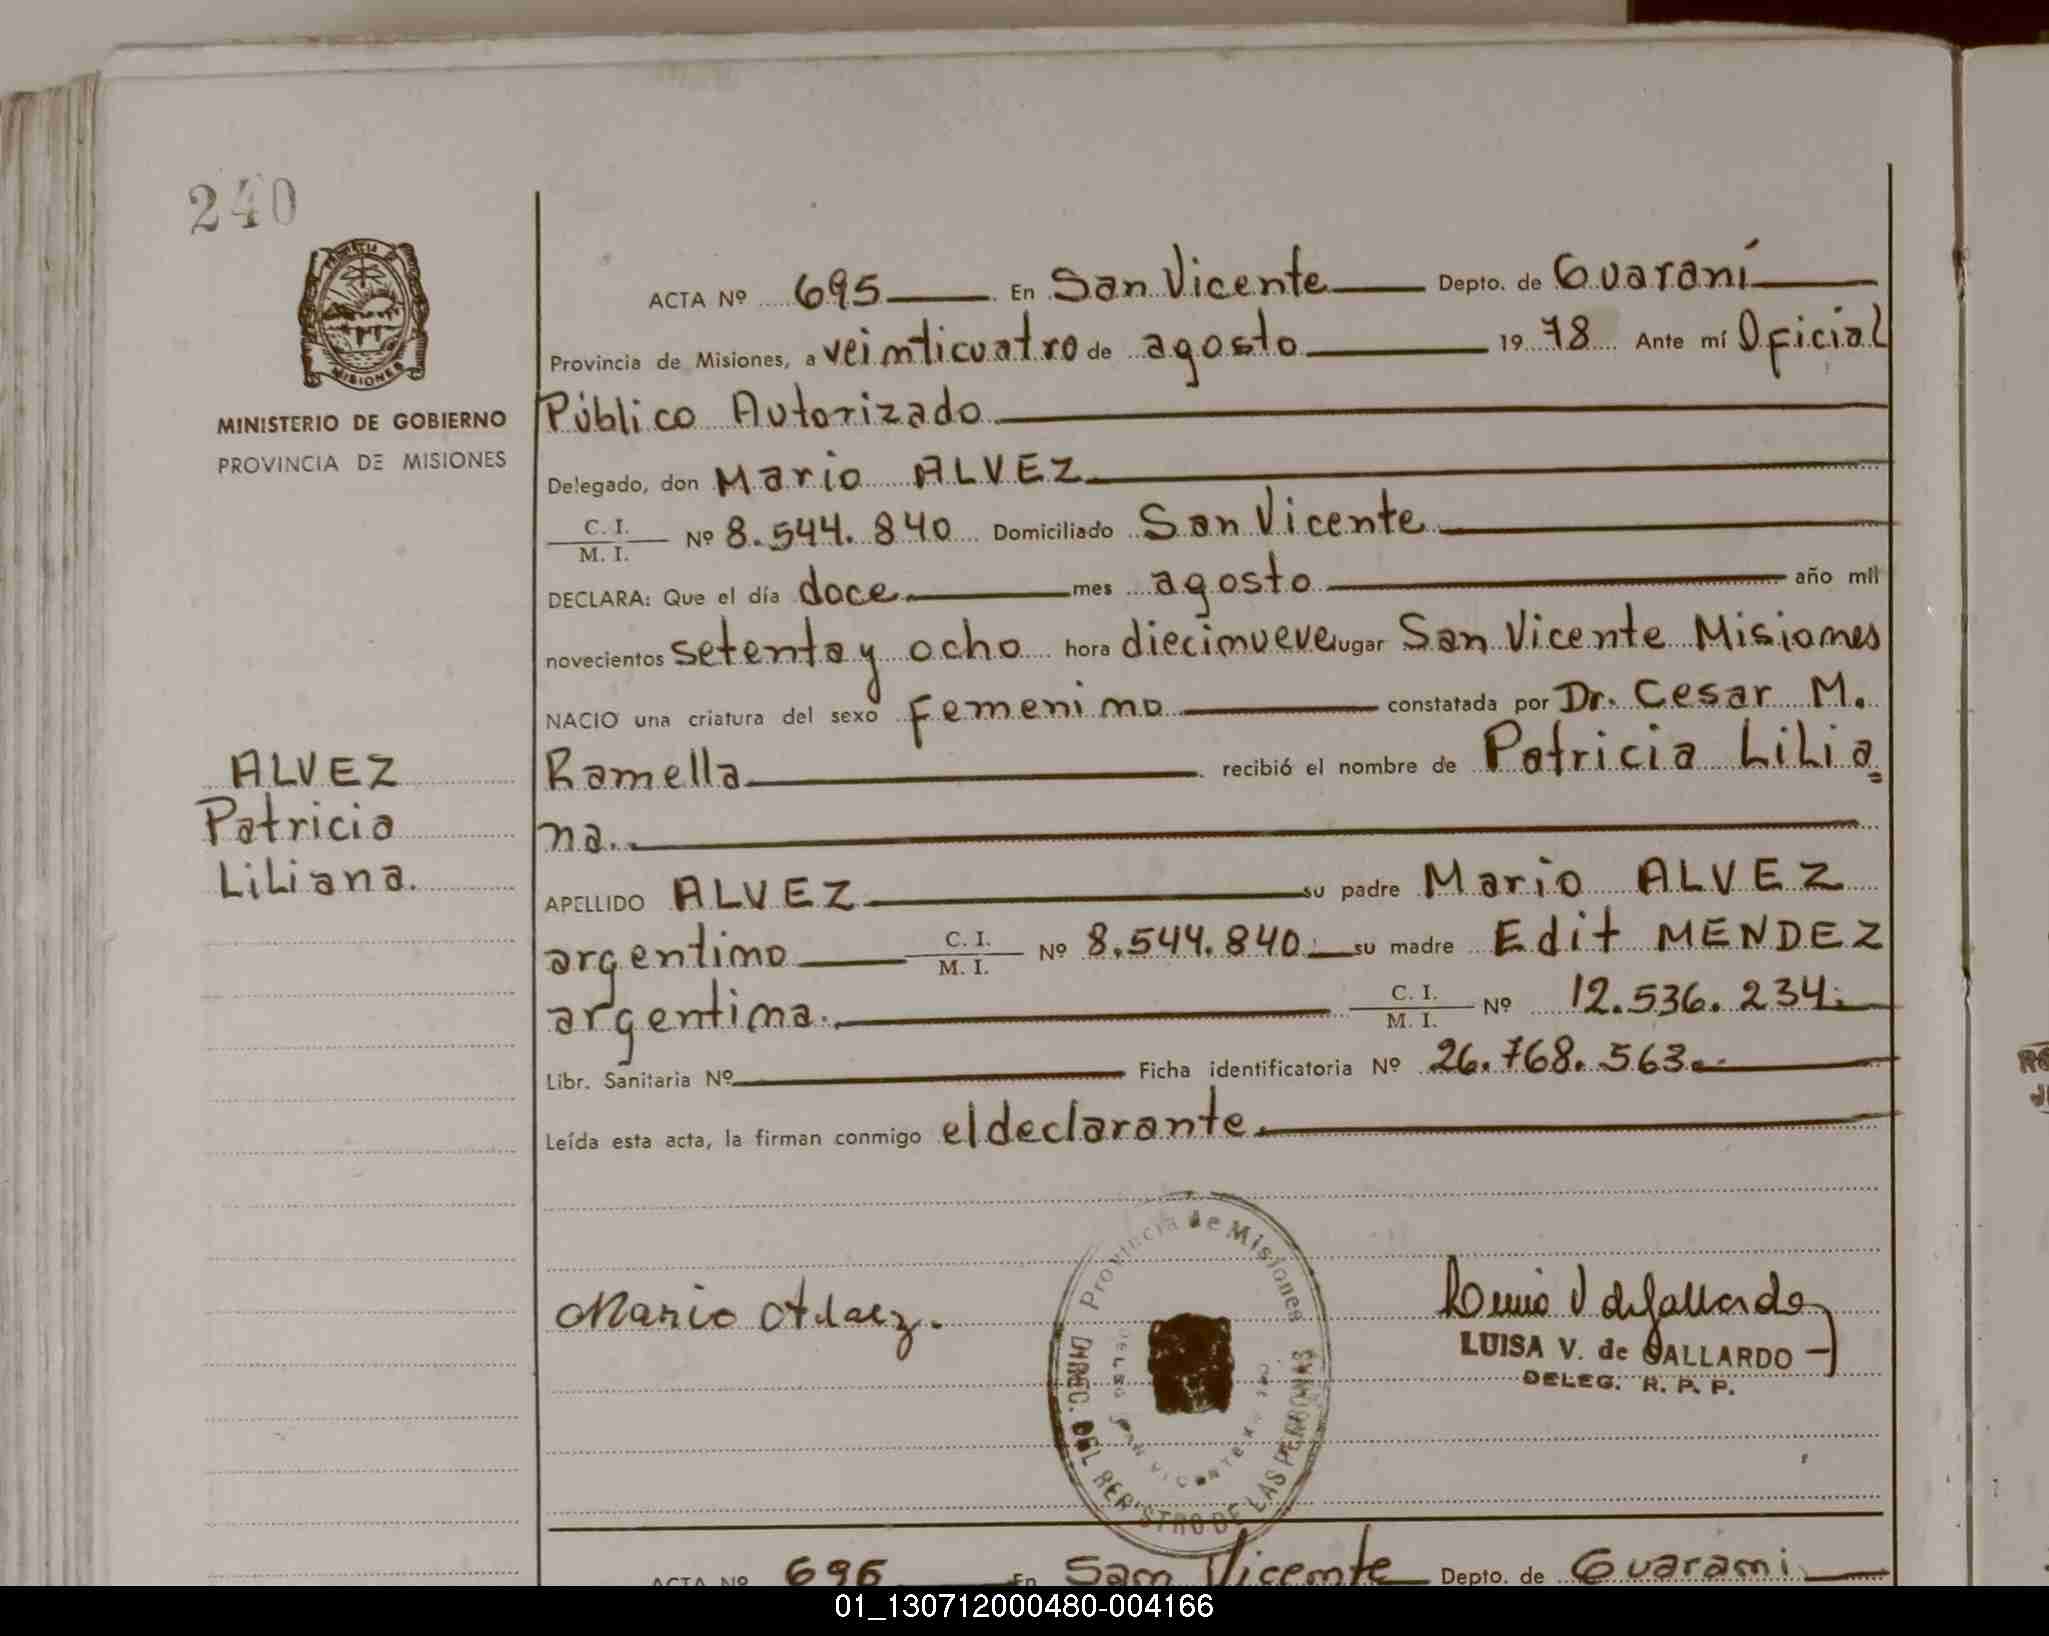 240
MISIONES
MINISTERIO DE GOBIERNO
PROVINCIA DE MISIONES
ALVEZ
Patricia
Liliana.
ACTA Nº 695 En San Vicente Depto. de Guaraní
Provincia de Misiones, a veinticuatro de agosto 1978 Ante mí Oficial
Público Autorizado
Delegado, don Mario ALVEZ
C. I.
M. I. Nº 8.544.840 Domiciliado San Vicente
DECLARA: Que el día doce mes agosto año mil
novecientos setenta y ocho hora diecinueve lugar San Vicente Misiones
NACIO una criatura del sexo femenino constatada por Dr. Cesar M.
Ramella recibió el nombre de Patricia Lilia=
na.
APELLIDO ALVEZ su padre Mario ALVEZ
argentino C. I. M. I. Nº 8.544.840 su madre Edit MENDEZ
argentina. C. I. M. I. Nº 12.536.234.
Libr. Sanitaria Nº Ficha identificatoria Nº 26.768.563.
Leída esta acta, la firman conmigo el declarante.
Mario Alvez.
Provincia de Misiones
DIREC. DEL REGISTRO DE LAS PERSONAS
SAN VICENTE
LUISA V. de GALLARDO
DELEG. R. P. P.
ACTA Nº 696 En San Vicente Depto. de Guarani
01_130712000480-004166